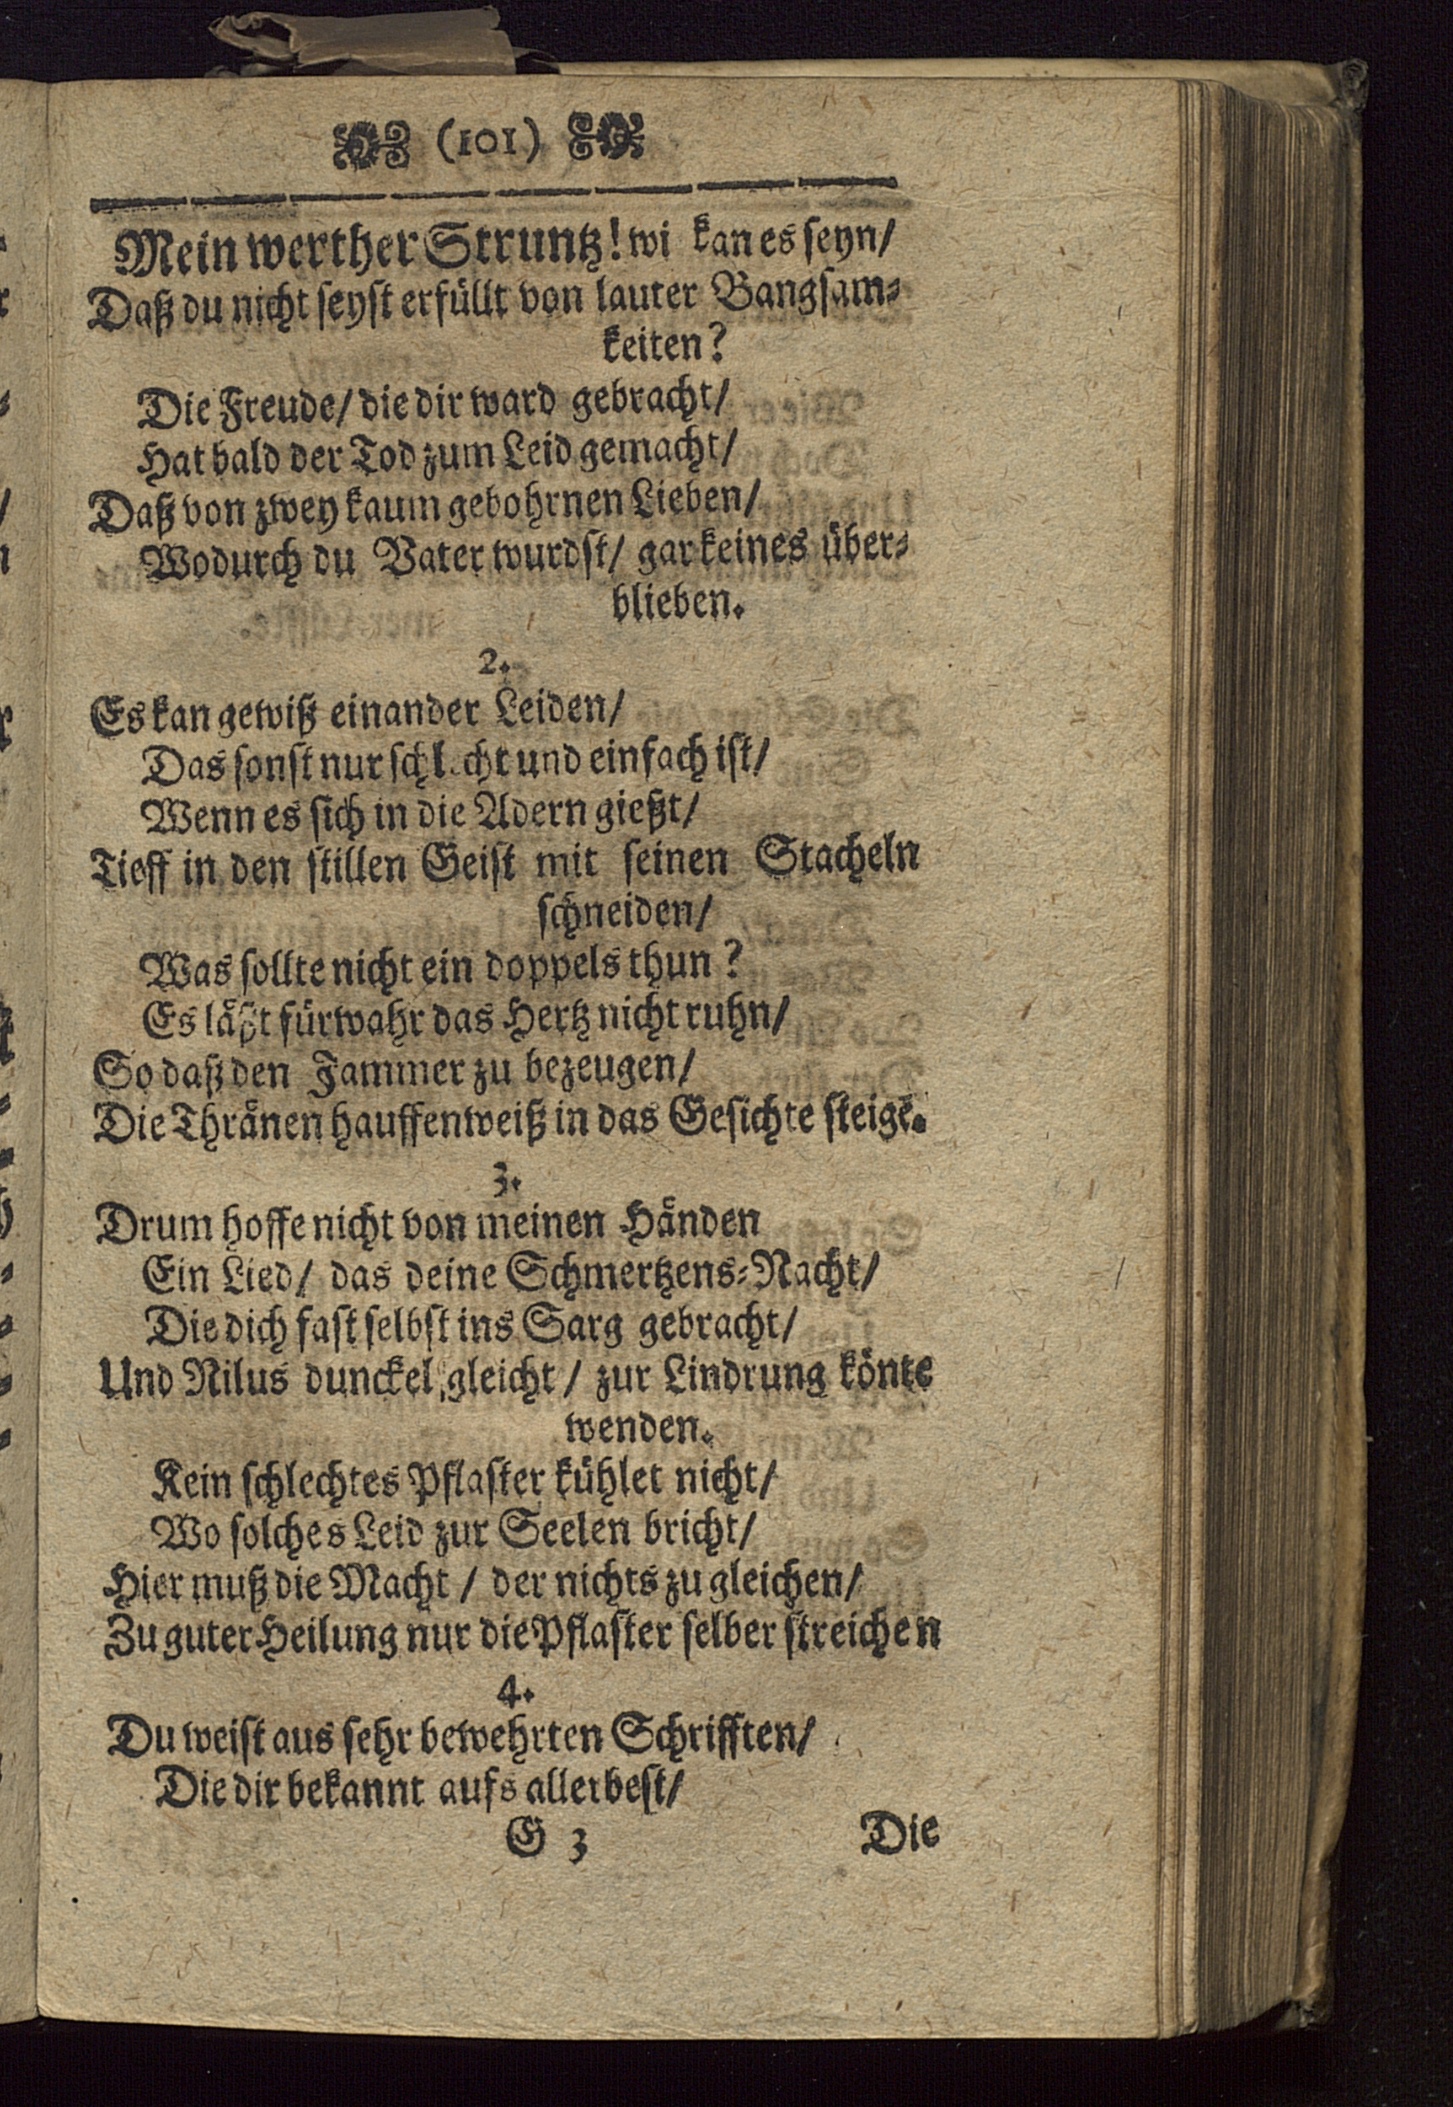 (101)
Mein werther Struntz! wi kan es seyn/
Daß du nicht seyst erfüllt von lauter Bangsam-
keiten?
Die Freude/ die dir ward gebracht/
Hat bald der Tod zum Leid gemacht/
Daß von zwey kaum gebohrnen Lieben/
Wodurch du Vater wurdst/ gar keines über-
blieben.
2.
Es kan gewiß einander Leiden/
Das sonst nur schlecht und einfach ist/
Wenn es sich in die Adern gießt/
Tieff in den stillen Geist mit seinen Stacheln
schneiden/
Was sollte nicht ein doppels thun?
Es läßt fürwahr das Hertz nicht ruhn/
So daß den Jammer zu bezeugen/
Die Thränen hauffenweiß in das Gesichte steigē.
3.
Drum hoffe nicht von meinen Händen
Ein Lied/ das deine Schmertzens-Nacht/
Die dich fast selbst ins Sarg gebracht/
Und Nilus dunckel gleicht/ zur Lindrung könte
wenden.
Kein schlechtes Pflaster kühlet nicht/
Wo solches Leid zur Seelen bricht/
Hier muß die Macht/ der nichts zu gleichen/
Zu guter Heilung nur die Pflaster selber streichen
4.
Du weist aus sehr bewehrten Schrifften/
Die dir bekannt aufs allerbest/
G 3 Die